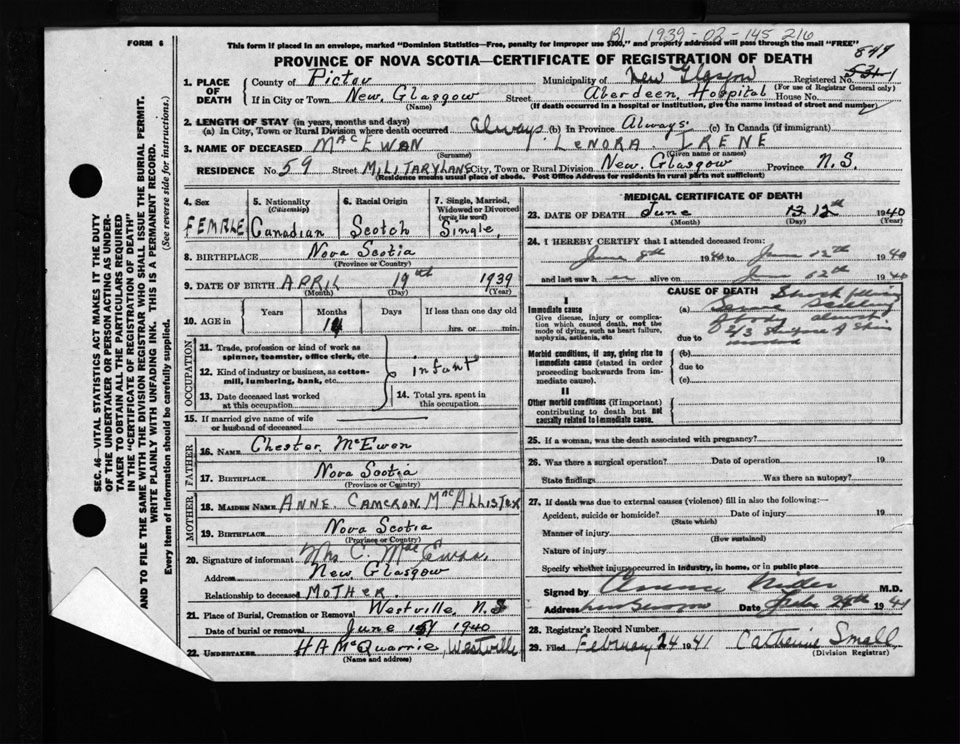 BL 1939-02-145216
FORM 6
This form if placed in an envelope, marked "Dominion Statistics—Free, penalty for improper use $300," and property addressed will pass through the mail "FREE"
PROVINCE OF NOVA SCOTIA—CERTIFICATE OF REGISTRATION OF DEATH
1. PLACE OF DEATH County of Pictou Municipality of New Glasgow Registered No.
(For use of Registrar General only)
If in City or Town New. Glasgow Street Aberdeen, Hospital House No.
(Name) (If death occurred in a hospital or institution, give the name instead of street and number)
2. LENGTH OF STAY (in years, months and days)
(a) In City, Town or Rural Division where death occurred always. (b) In Province Always. (c) In Canada (if immigrant)
3. NAME OF DECEASED MacEWAN LENORA. IRENE
(Surname) (Given name or names)
RESIDENCE No. 59 Street MILITARYLANE City, Town or Rural Division New. Glasgow Province N.S.
(Residence means usual place of abode. Post Office Address for residents in rural parts not sufficient)
4. Sex FEMALE
5. Nationality (Citizenship) Canadian
6. Racial Origin Scotch
7. Single, Married, Widowed or Divorced (write the word) Single,
8. BIRTHPLACE Nova Scotia
(Province or Country)
9. DATE OF BIRTH APRIL 19th 1939
(Month) (Day) (Year)
10. AGE in Years Months Days If less than one day old
14 hrs. or min.
OCCUPATION
11. Trade, profession or kind of work as spinner, teamster, office clerk, etc.
12. Kind of industry or business, as cotton-mill, lumbering, bank, etc. infant
13. Date deceased last worked at this occupation
14. Total yrs. spent in this occupation
15. If married give name of wife or husband of deceased
FATHER
16. NAME Chester McEwen
17. BIRTHPLACE Nova Scotia
(Province or Country)
MOTHER
18. MAIDEN NAME ANNE. CAMERON MacALLISTER
19. BIRTHPLACE Nova Scotia
(Province or Country)
20. Signature of informant Mrs C. MacEwan.
Address New. Glasgow
Relationship to deceased MOTHER.
21. Place of Burial, Cremation or Removal Westville, N.S
Date of burial or removal June 1940
22. UNDERTAKER H A McQuarrie, Westville
(Name and address)
MEDICAL CERTIFICATE OF DEATH
23. DATE OF DEATH June 12th 1940
(Month) (Day)
24. I HEREBY CERTIFY that I attended deceased from:
June 8th 1940 to June 12th 1940
and last saw her alive on June 12th 1940
CAUSE OF DEATH
I
Immediate cause
Give disease, injury or complication which caused death, not the mode of dying, such as heart failure, asphyxia, asthenia, etc
(a) Shock following
due to
Morbid conditions, if any, giving rise to immediate cause (stated in order proceeding backwards from immediate cause).
(b)
due to
(c)
II
Other morbid conditions (if important) contributing to death but not causally related to immediate cause.
25. If a woman, was the death associated with pregnancy?
26. Was there a surgical operation? Date of operation 19
State findings Was there an autopsy?
27. If death was due to external causes (violence) fill in also the following:—
Accident, suicide or homicide? Date of injury 19
(State which)
Manner of injury
(How sustained)
Nature of injury
Specify whether injury occurred in industry, in home, or in public place
Signed by Clarence Miller M.D.
Address New Glasgow Date Feb 24th 1941
28. Registrar's Record Number
29. Filed February 24 1941 Catherine Small
(Division Registrar)
SEC. 46—VITAL STATISTICS ACT MAKES IT THE DUTY
OF THE UNDERTAKER OR PERSON ACTING AS UNDER-
TAKER TO OBTAIN ALL THE PARTICULARS REQUIRED
IN THE "CERTIFICATE OF REGISTRATION OF DEATH"
AND TO FILE THE SAME WITH THE DIVISION REGISTRAR WHO SHALL ISSUE THE BURIAL PERMIT.
WRITE PLAINLY WITH UNFADING INK. THIS IS A PERMANENT RECORD.
Every item of information should be carefully supplied. (See reverse side for instructions.)